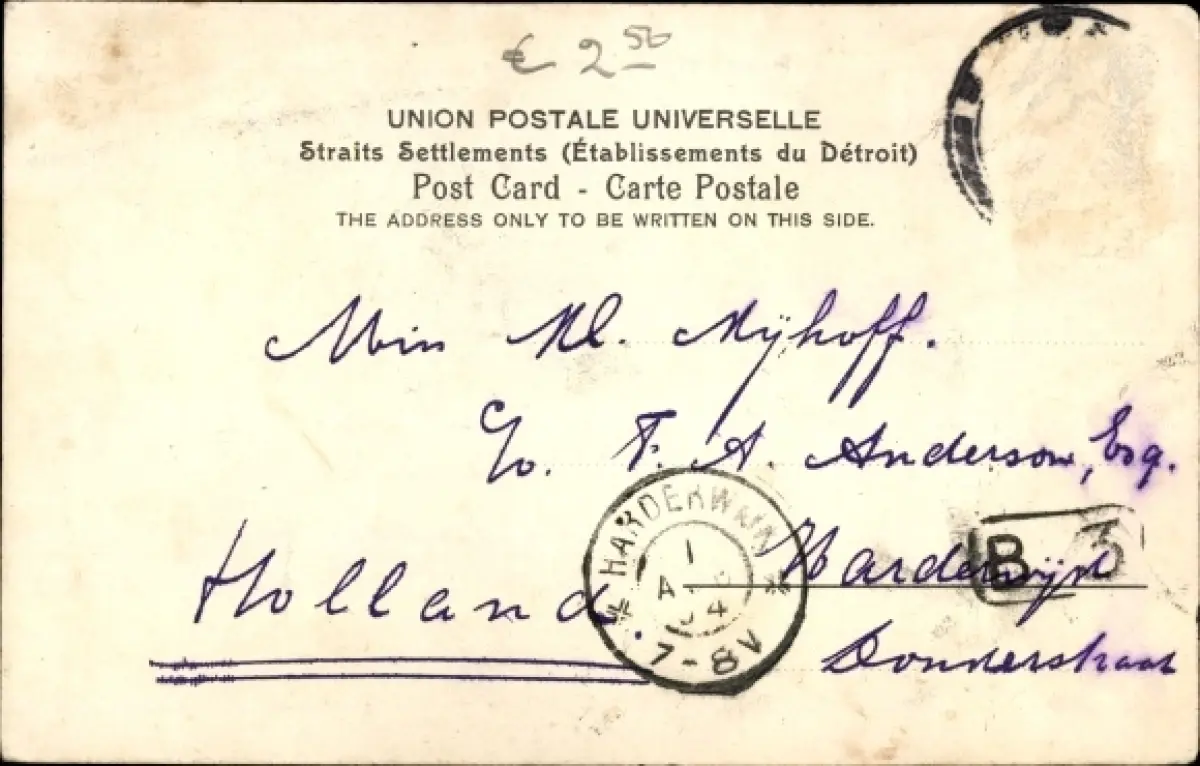 € 2.50
UNION POSTALE UNIVERSELLE
Straits Settlements (Établissements du Détroit)
Post Card - Carte Postale
THE ADDRESS ONLY TO BE WRITTEN ON THIS SIDE.
Kl. Nijhoff.
c/o. F. A. Anderson, Esq.
Harderwijk
Holland.
Donderstraat
HARDERWIJK
1
04
7-8V
B 3